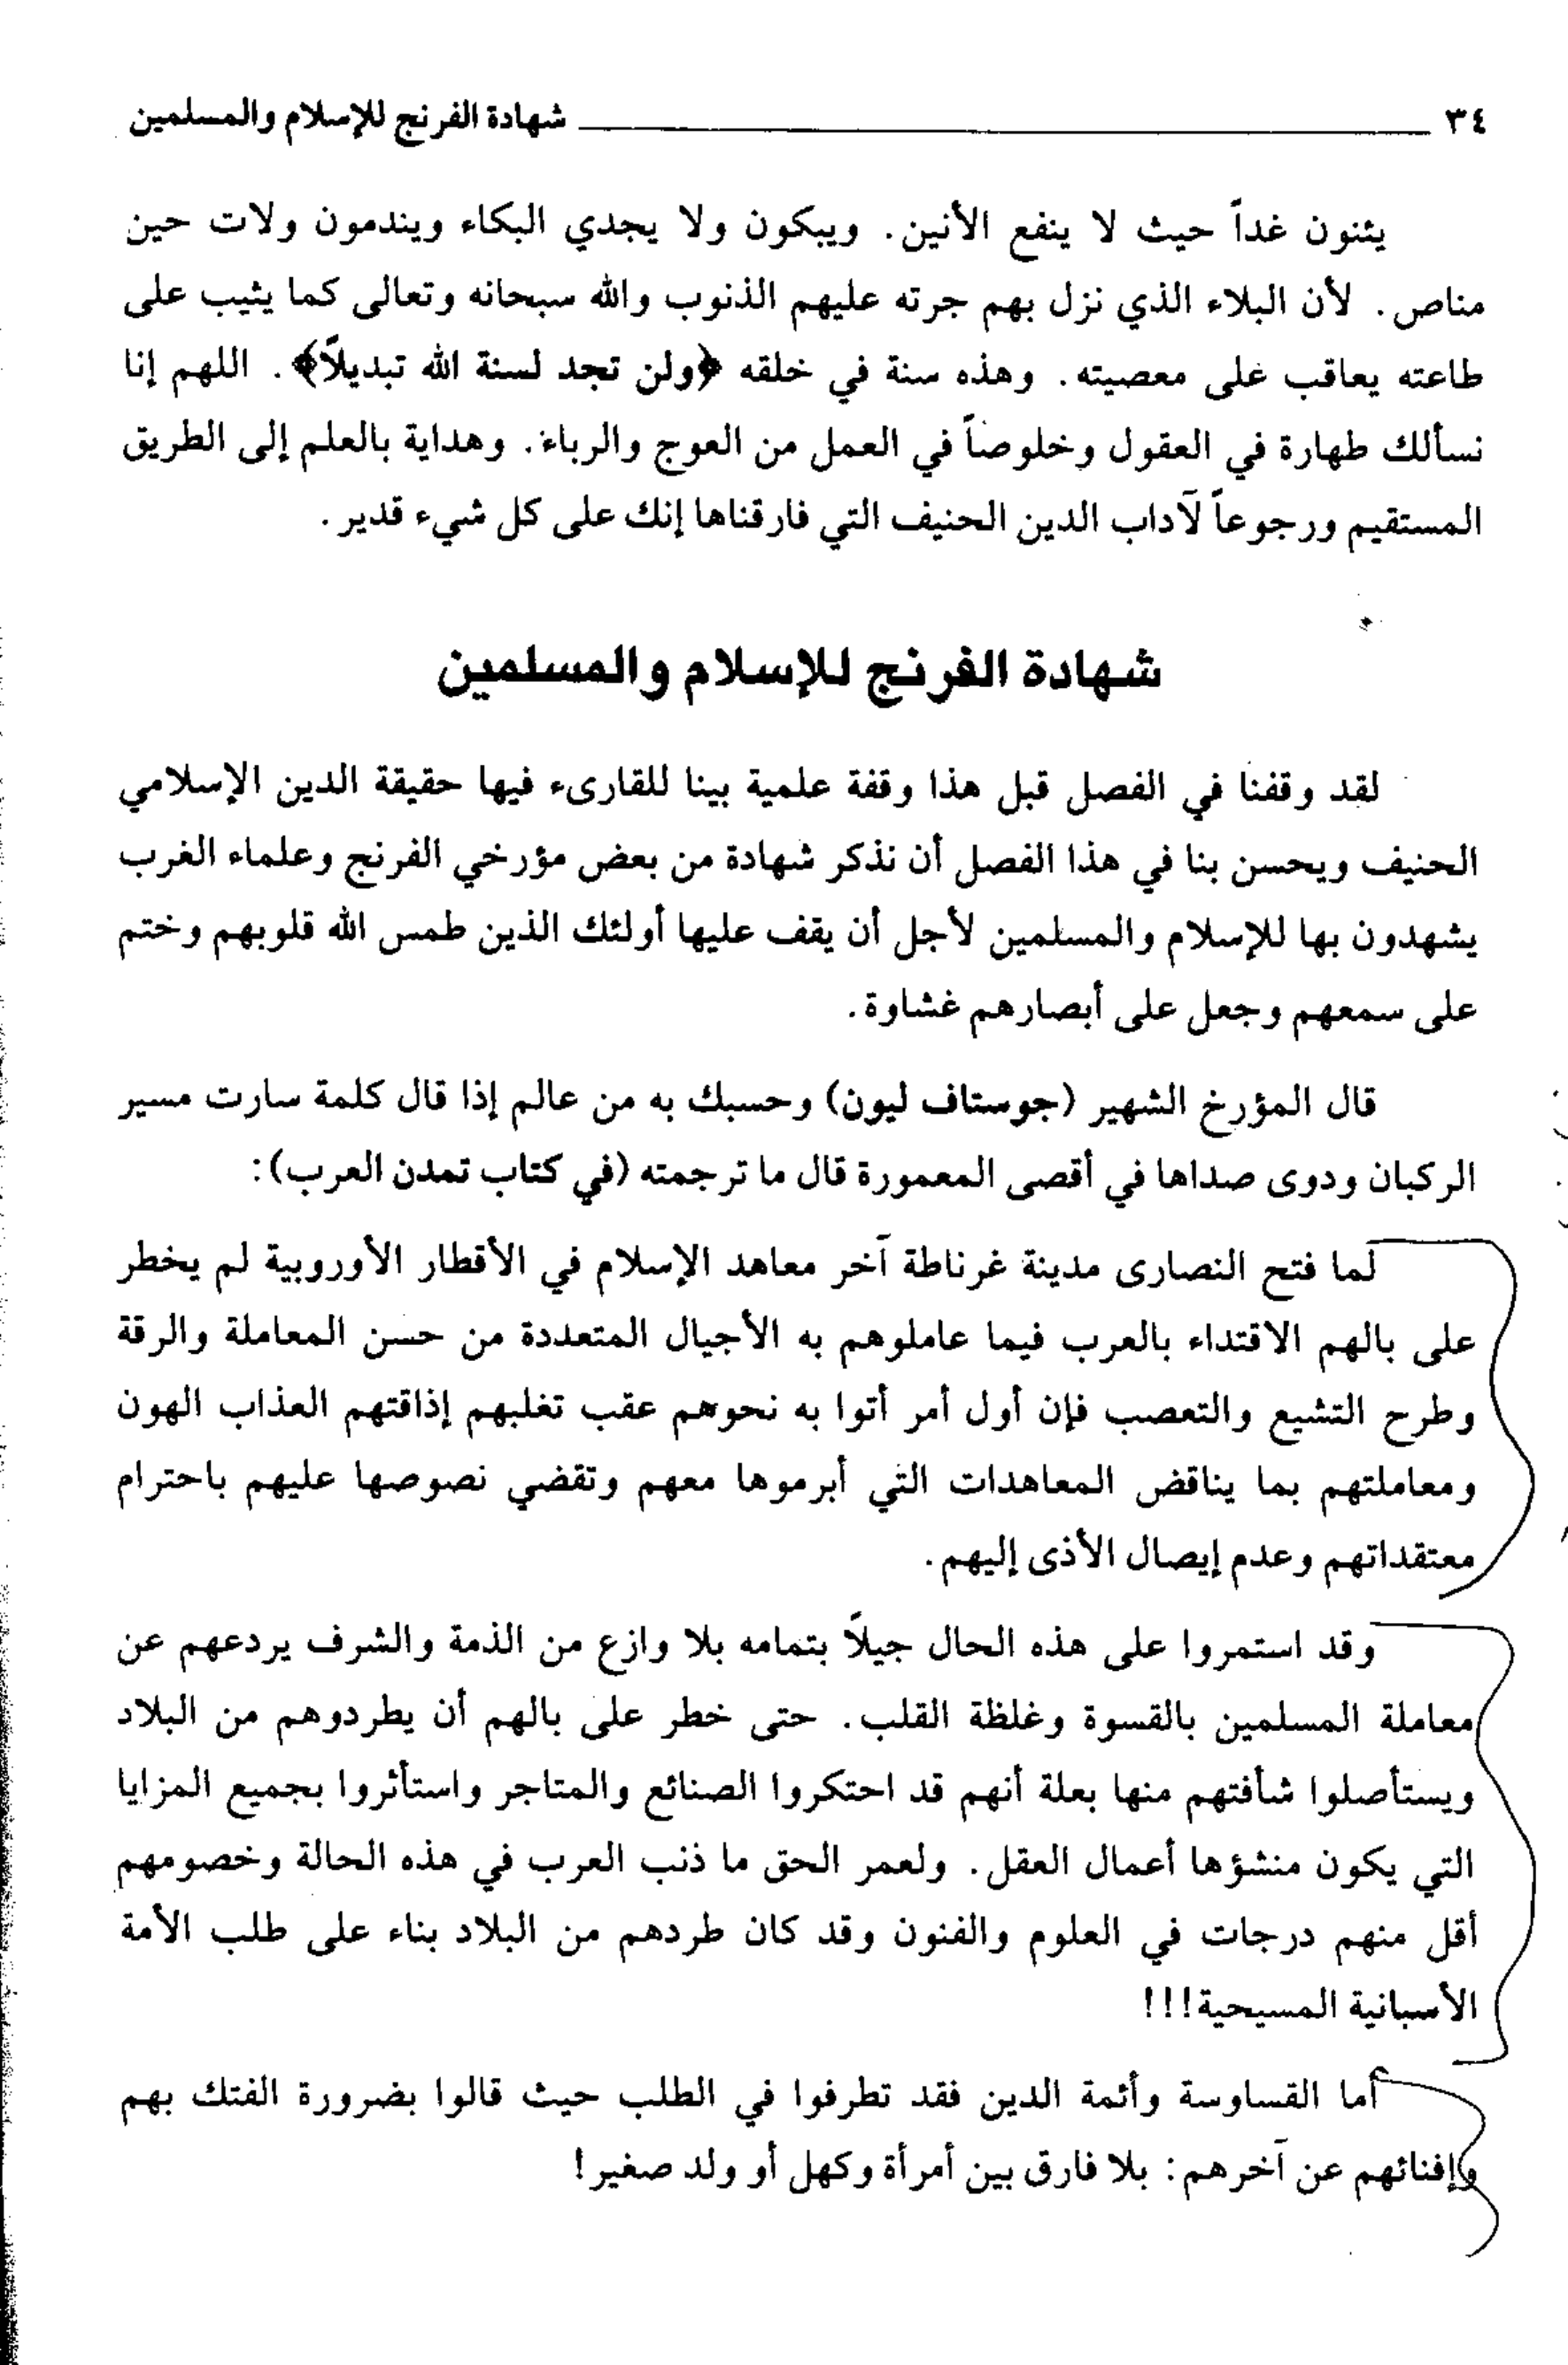 ٣٤ شهادة الفرنج للإسلام والمسلمين
يئنون غداً حيث لا ينفع الأنين. ويبكون ولا يجدي البكاء ويندمون ولات حين
مناص. لأن البلاء الذي نزل بهم جرته عليهم الذنوب والله سبحانه وتعالى كما يثيب على
طاعته يعاقب على معصيته. وهذه سنة في خلقه ﴿ولن تجد لسنة الله تبديلاً﴾. اللهم إنا
نسألك طهارة في العقول وخلوصاً في العمل من العوج والرباء. وهداية بالعلم إلى الطريق
المستقيم ورجوعاً لآداب الدين الحنيف التي فارقناها إنك على كل شيء قدير.
شهادة الفرنج للإسلام والمسلمين
لقد وقفنا في الفصل قبل هذا وقفة علمية بينا للقارىء فيها حقيقة الدين الإسلامي
الحنيف ويحسن بنا في هذا الفصل أن نذكر شهادة من بعض مؤرخي الفرنج وعلماء الغرب
يشهدون بها للإسلام والمسلمين لأجل أن يقف عليها أولئك الذين طمس الله قلوبهم وختم
على سمعهم وجعل على أبصارهم غشاوة.
قال المؤرخ الشهير (جوستاف ليون) وحسبك به من عالم إذا قال كلمة سارت مسير
الركبان ودوى صداها في أقصى المعمورة قال ما ترجمته (في كتاب تمدن العرب):
لما فتح النصارى مدينة غرناطة آخر معاهد الإسلام في الأقطار الأوروبية لم يخطر
على بالهم الاقتداء بالعرب فيما عاملوهم به الأجيال المتعددة من حسن المعاملة والرقة
وطرح التشيع والتعصب فإن أول أمر أتوا به نحوهم عقب تغلبهم إذاقتهم العذاب الهون
ومعاملتهم بما يناقض المعاهدات التي أبرموها معهم وتقضي نصوصها عليهم باحترام
معتقداتهم وعدم إيصال الأذى إليهم.
وقد استمروا على هذه الحال جيلاً بتمامه بلا وازع من الذمة والشرف يردعهم عن
معاملة المسلمين بالقسوة وغلظة القلب. حتى خطر على بالهم أن يطردوهم من البلاد
ويستأصلوا شأفتهم منها بعلة أنهم قد احتكروا الصنائع والمتاجر واستأثروا بجميع المزايا
التي يكون منشؤها أعمال العقل. ولعمر الحق ما ذنب العرب في هذه الحالة وخصومهم
أقل منهم درجات في العلوم والفنون وقد كان طردهم من البلاد بناء على طلب الأمة
الأسبانية المسيحية!!!
أما القساوسة وأئمة الدين فقد تطرفوا في الطلب حيث قالوا بضرورة الفتك بهم
وإفنائهم عن آخرهم: بلا فارق بين أمرأة وكهل أو ولد صغير!